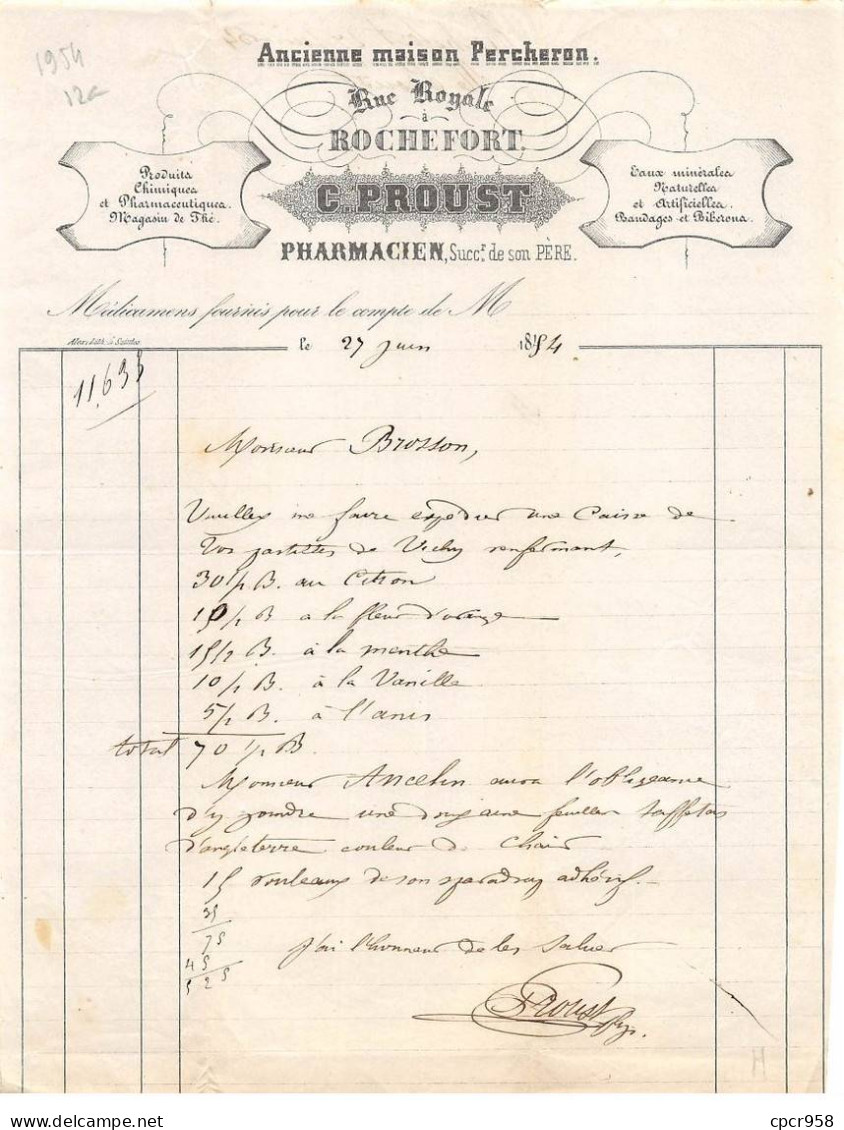 1954
12c
Ancienne maison Percheron.
Rue Royale
à
ROCHEFORT.
C. PROUST
PHARMACIEN, Succr. de son PÈRE.
Produits
Chimiques
et Pharmaceutiques.
Magasin de Thé.
Eaux minérales
Naturelles
et Artificielles.
Bandages et Biberons.
Médicamens fournis pour le compte de M
Lith. à Saintes
le 27 juin 1854
11,633
Monsieur Brosson,
Veuillez me faire expédier une Caisse de
Vos pastilles de Vichy renfermant,
30 1/2 B. au Citron
10 1/2 B a la fleur d'orange
15/2 B. à la menthe
10 1/2 B. à la Vanille
5/2 B. à l'anis
total 70 1/2 B.
Monsieur Ancelin aura l'obligeance
d'y joindre une douzaine feuilles taffetas
d'angleterre couleur de Chair
15 rouleaux de son sparadrap adhésif.
35
75
45
525
J'ai l'honneur de les Saluer
Proust
H
cpcr958